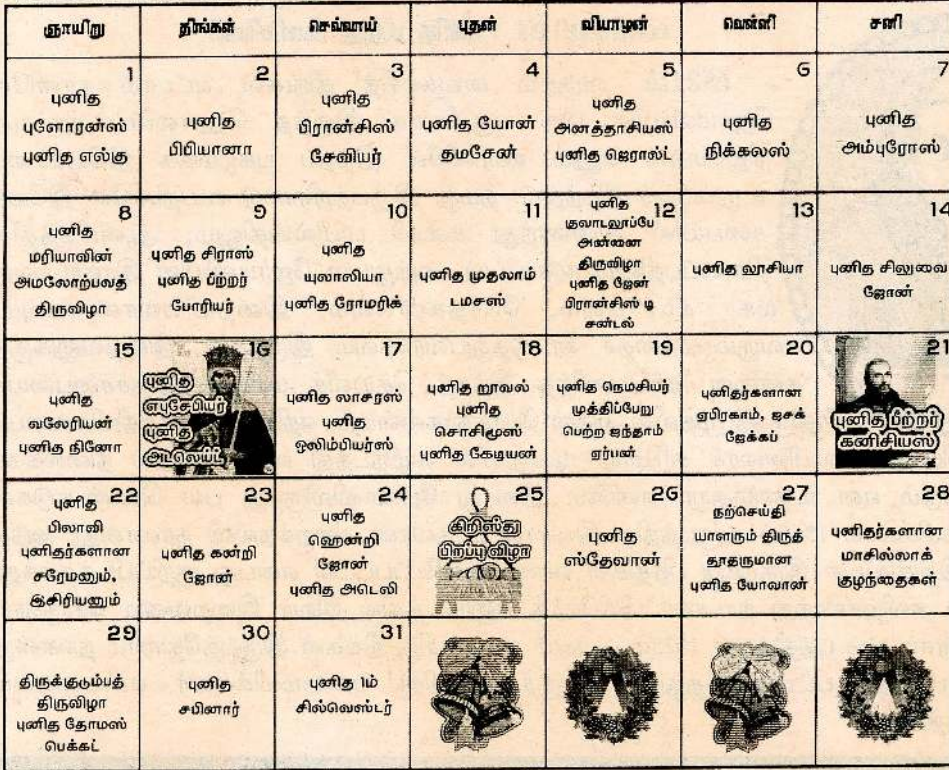 ஞாயிறு திங்கள் செவ்வாய் புதன் வியாழன் வெள்ளி சனி
1
புனித
புளோரன்ஸ்
புனித எல்கு
2
புனித
பிபியானா
3
புனித
பிரான்சிஸ்
சேவியர்
4
புனித யோன்
தமசேன்
5
புனித
அனத்தாசியஸ்
புனித ஜெரால்ட்
6
புனித
நிக்கலஸ்
7
புனித
அம்புரோஸ்
8
புனித
மரியாவின்
அமலோற்பவத்
திருவிழா
9
புனித சிராஸ்
புனித பீற்றர்
போரியர்
10
புனித
யுலாலியா
புனித ரோமரிக்
11
புனித முதலாம்
டமசஸ்
12
புனித
குவாடலூப்பே
அன்னை
திருவிழா
புனித ஜேன்
பிரான்சிஸ் டி
சன்டல்
13
புனித லூசியா
14
புனித சிலுவை
ஜோன்
15
புனித
வலேரியன்
புனித நினோ
16
புனித
எபுசேபியர்
புனித
அடலெய்ட்
17
புனித லாசரஸ்
புனித
ஒலிம்பியர்ஸ்
18
புனித றூவல்
புனித
சொசிமூஸ்
புனித கேடியன்
19
புனித நெமசியர்
முத்திப்பேறு
பெற்ற ஐந்தாம்
ஏர்பன்
20
புனிதர்களான
ஏபிரகாம், ஐசக்
ஜேக்கப்
21
புனித பீற்றர்
கனிசியஸ்
22
புனித
பிலாவி
புனிதர்களான
சரேமனும்,
இசிரியனும்
23
புனித கன்றி
ஜோன்
24
புனித
ஹென்றி
ஜோன்
புனித அடெலி
25
கிறிஸ்து
பிறப்புவிழா
26
புனித
ஸ்தேவான்
27
நற்செய்தி
யாளரும் திருத்
தூதருமான
புனித யோவான்
28
புனிதர்களான
மாசில்லாக்
குழந்தைகள்
29
திருக்குடும்பத்
திருவிழா
புனித தோமஸ்
பெக்கட்
30
புனித
சபினார்
31
புனித 1ம்
சில்வெஸ்டர்